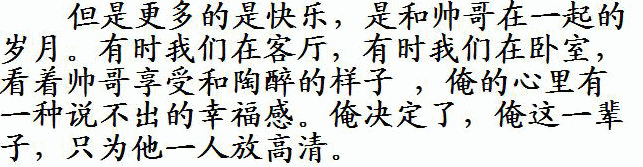 但是更多的是快乐，是和帅哥在一起的
岁月。有时我们在客厅，有时我们在卧室，
看着帅哥享受和陶醉的样子 ，俺的心里有
一种说不出的幸福感。俺决定了，俺这一辈
子，只为他一人放高清。